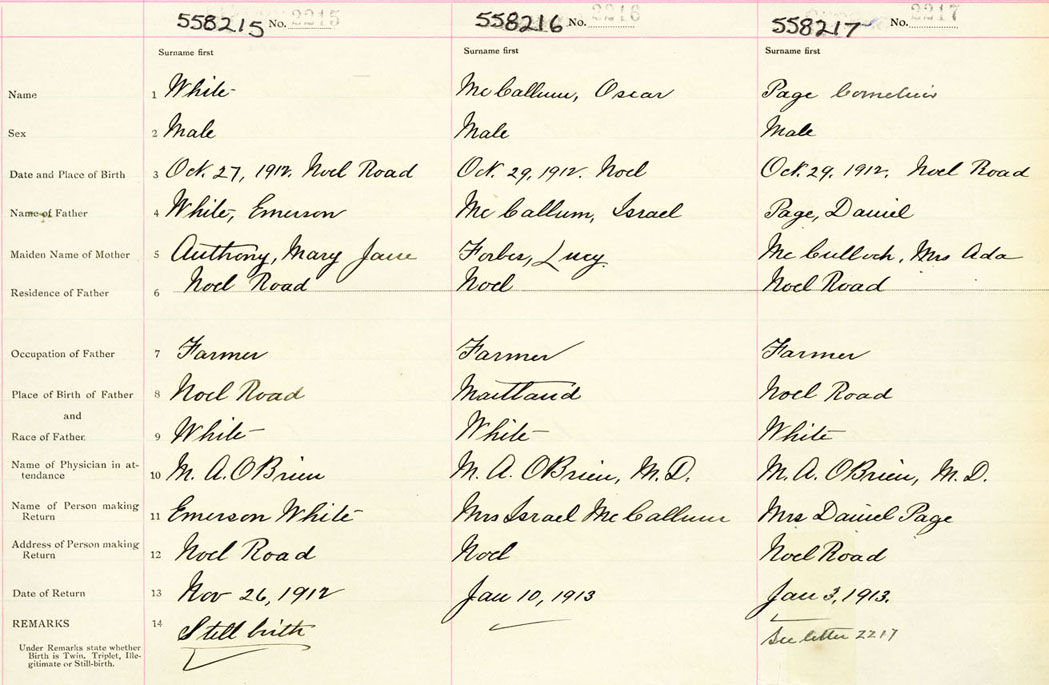 558215 No. 2215 558216 No. 2216 558217 No. 2217
Surname first Surname first Surname first
Name 1 White McCallum, Oscar Page Cornelius
Sex 2 Male Male Male
Date and Place of Birth 3 Oct. 27, 1912. Noel Road Oct. 29, 1912. Noel Oct. 29, 1912. Noel Road
Name of Father 4 White, Emerson McCallum, Israel Page, Daniel
Maiden Name of Mother 5 Authony, Mary Jane Forbes, Lucy. McCulloch, Mrs Ada
Residence of Father 6 Noel Road Noel Noel Road
Occupation of Father 7 Farmer Farmer Farmer
Place of Birth of Father 8 Noel Road Maitland Noel Road
and
Race of Father. 9 White White White
Name of Physician in at-
tendance 10 M. A. OBrien M. A. OBrien, M.D. M. A. OBrien, M.D.
Name of Person making
Return 11 Emerson White Mrs Israel McCallum Mrs Daniel Page
Address of Person making
Return 12 Noel Road Noel Noel Road
Date of Return 13 Nov 26, 1912 Jan 10, 1913 Jan 3, 1913.
REMARKS 14 Still birth See letter 2217
Under Remarks state whether
Birth is Twin, Triplet, Ille-
gitimate or Still-birth.